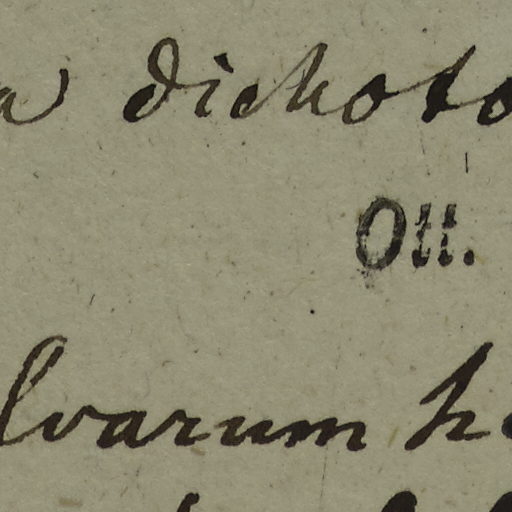 a dichoto
Ott.
lvarum h